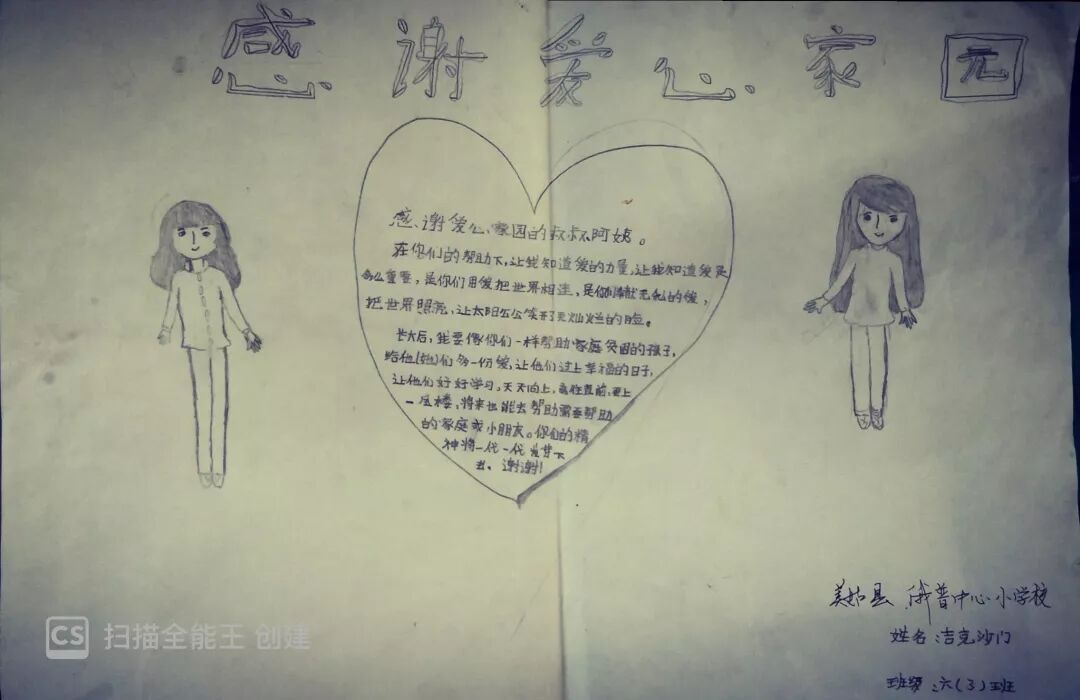 感谢爱心家园
感谢爱心家园的叔叔阿姨。
在你们的帮助下,让我知道爱的力量,让我知道爱是
多么重要,是你们用爱把世界相连,是你们无私的爱,
把世界照亮,让太阳公公笑开了灿烂的脸。
长大后,我要像你们一样帮助家庭贫困的孩子,
给他(她)们多一份爱,让他们过上幸福的日子,
让他们好好学习,天天向上,勇往直前,更上
一层楼,将来也能去帮助需要帮助
的家庭或小朋友。你们的精
神将一代一代发扬下
去,谢谢!
美姑县 俄普中心小学校
姓名 洁克沙门
班级 六(3)班
CS 扫描全能王 创建